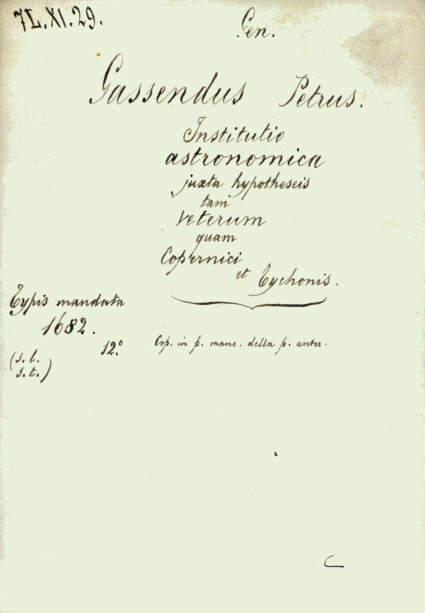 7L.XI.29.
Gen.
Gassendus Petrus.
Institutio
astronomica
juxta hypotheseis
tam
Veterum
quam
Copernici
et Tychonis.
Typis mandata
1682.
12.°
(s. l.
s. t.)
Cop. in p. manc. della p. anter.